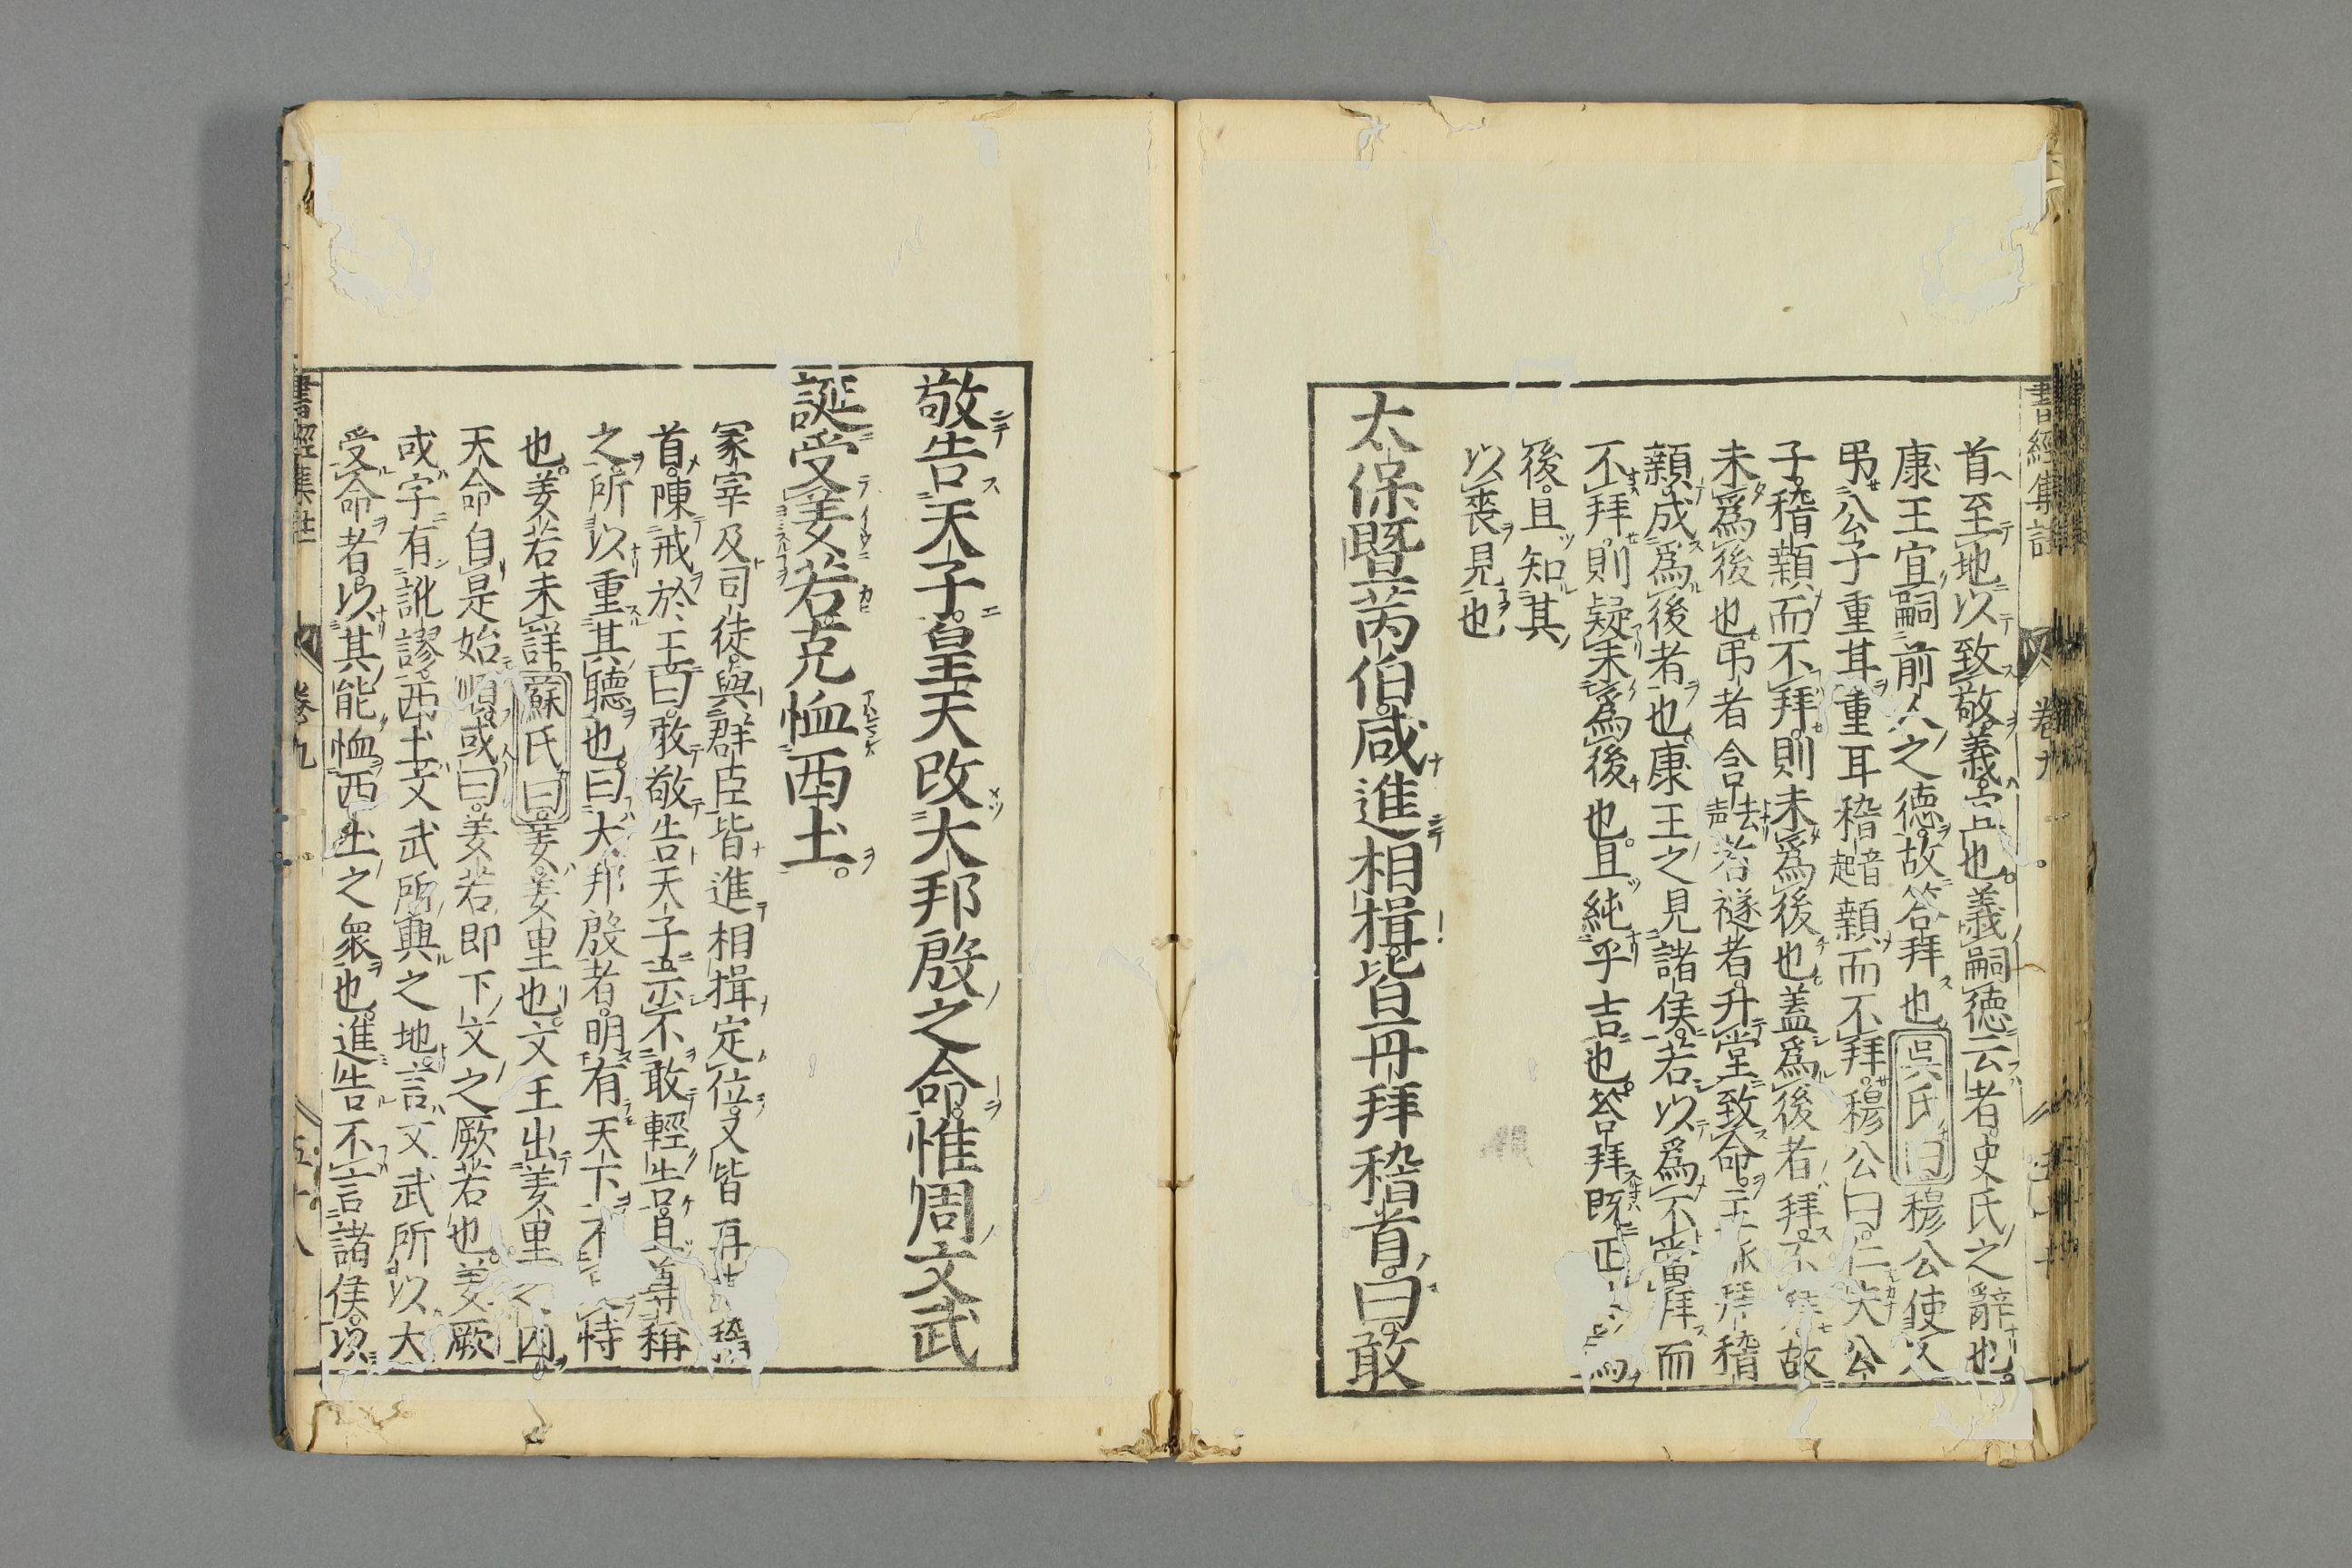 書經集註 卷九
首至地以致敬義宜也義嗣德云者史氏之辭也
康王宜嗣前人之德故答拜也吳氏曰穆公使人
弔公子重耳重耳稽音起顙而不拜穆公曰仁夫公
子稽顙而不拜則未爲後也蓋爲後者拜不拜故
未爲後也弔者含去声者襚者升堂致命主孤拜稽
顙成爲後者也康王之見諸侯若以爲不當拜而
不拜則疑未爲後也且純乎吉也答拜既正其爲
後且知其
以喪見也
太保暨芮伯咸進相揖皆再拜稽首曰敢
敬告天子皇天改大邦殷之命惟周文武
誕受羑若克恤西土
冢宰及司徒與群臣皆進相揖定位又皆再拜稽
首陳戒於王曰敢敬告天子示不敢輕告且尊稱
之所以重其聽也曰大邦殷者明有天下不足恃
也羑若未詳蘇氏曰羑羑里也文王出羑里之囚
天命自是始順或曰羑若即下文之厥若也羑厥
或字有訛謬西土文武所興之地言文武所以大
受命者以其能恤西土之衆也進告不言諸侯以
書經集註 卷九